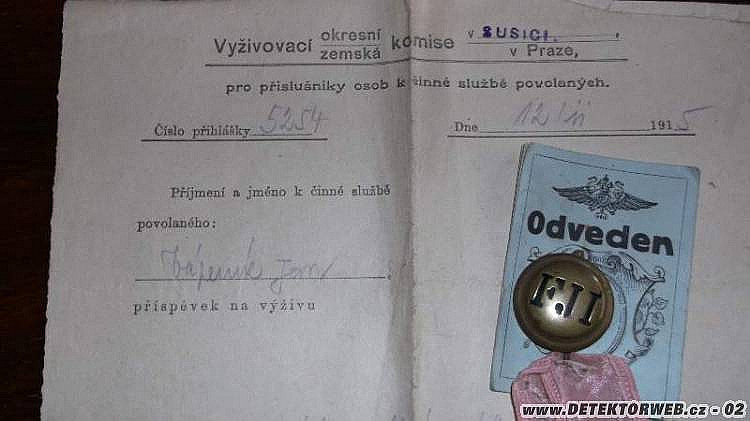 Vyživovací okresní zemská komise v SUSICI. v Praze,
pro příslušníky osob k činné službě povolaných.
Číslo přihlášky 5254
Dne 12/II 1915
Příjmení a jméno k činné službě
povolaného:
Jan
příspěvek na výživu
Odveden
F.J.I
www.DETEKTORWEB.cz - 02